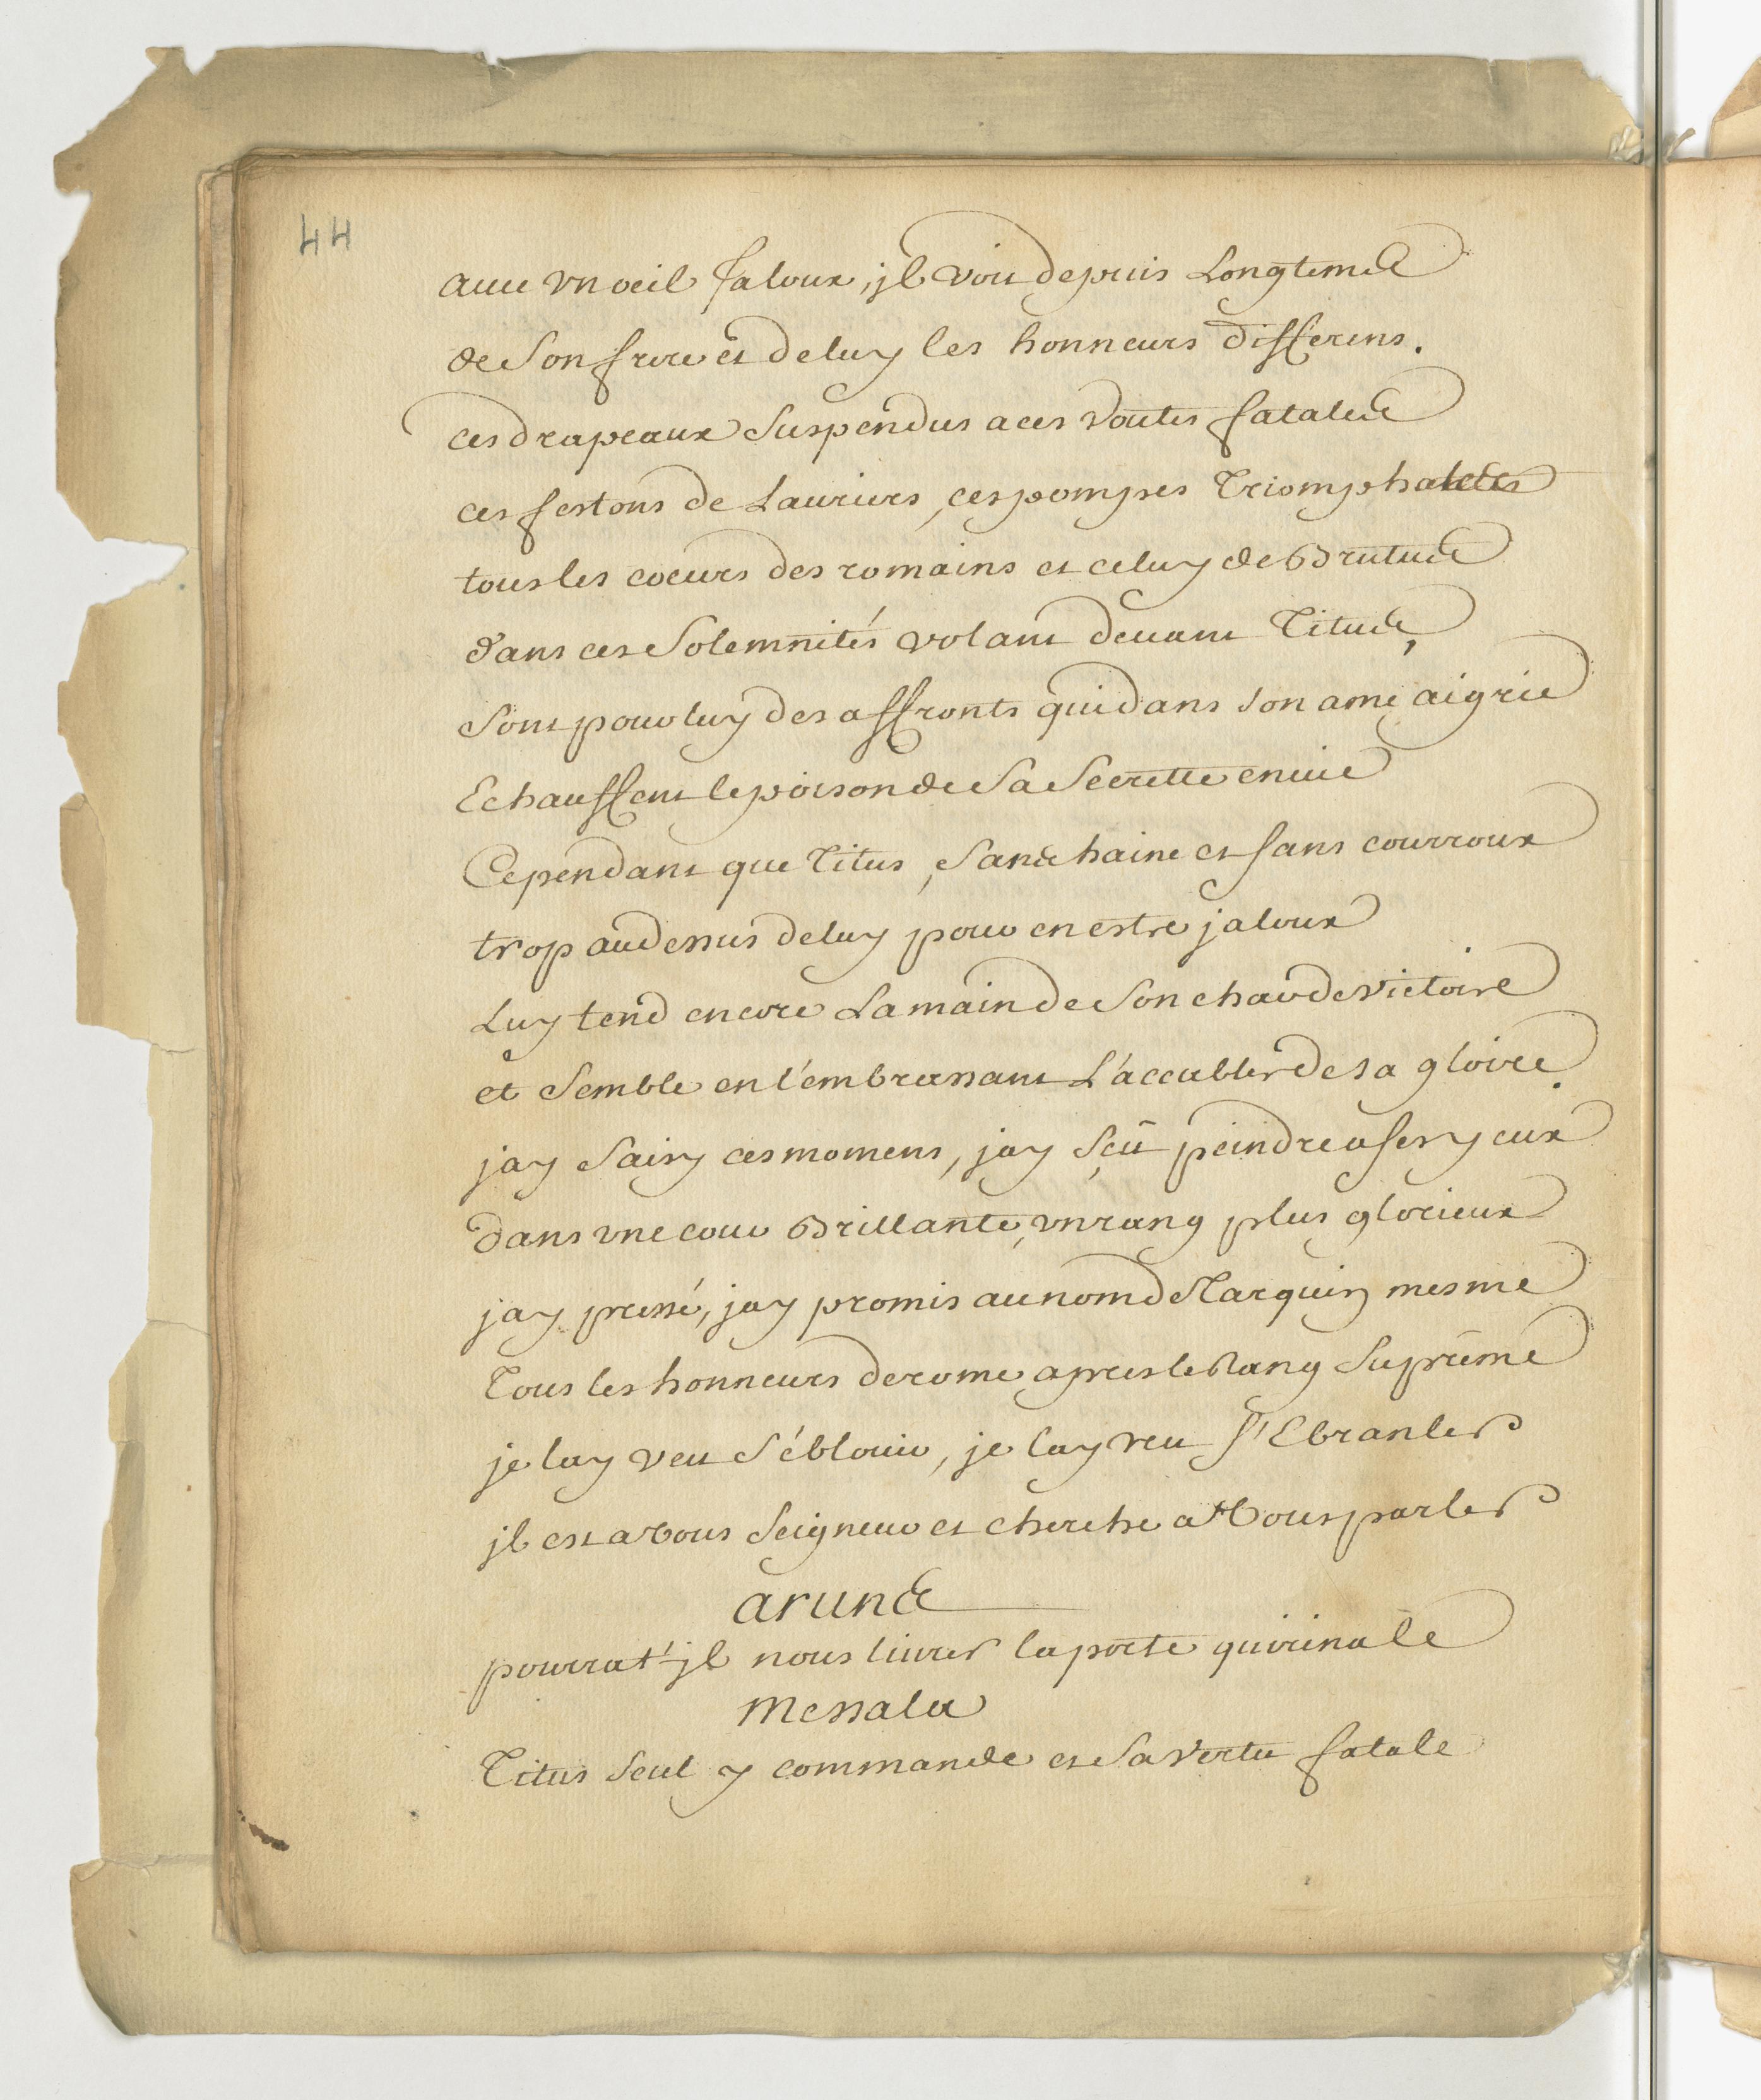 44
auec vn oeil Jaloux, jl voit depuis Longtems
de Son frere et de luy les honneurs differens.
ces drapeaux Suspendus a ces voutes fatales
ces festons de Lauriers, ces pompes Triomphales
tous les coeurs des romains et celuy de Brutus
dans ces Solemnités volant deuant Titus,
Sont pour luy des affronts qui dans son ame aigrie
Echauffent le poison de Sa Secrette enuie
Cependant que Titus, Sans haine et sans courroux
trop au dessus de luy pour en estre jaloux
Luy tend encore La main de Son char de victoire
et Semble en l'embrassant L'accabler de sa gloire.
jay Saisy ces momens, jay Sçû peindre a ses yeux
dans vne cour Brillante, vn rang plus glorieux
jay pressé, jay promis au nom de Tarquin mesme
Tous les honneurs de rome apres le Rang Suprême
je lay veu S'éblouir, je lay veu s'Ebranler
jl est a vous Seigneur et cherche a Vous parler
aruns
pourrat'jl nous liurer la porte quirinale
Messala
Titus Seul y commande et Sa vertu fatale